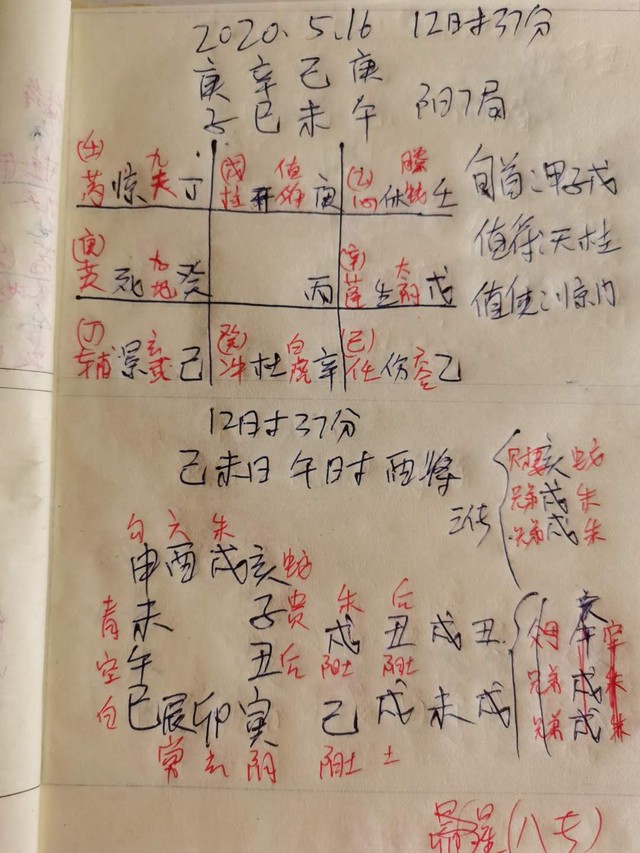 2020.5.16 12时37分
庚辛己庚
子巳未午 阳7局
(壬) 九 (戊) 值 (乙) 螣
惊 天 丁 柱 开 符 庚 心 休 蛇 壬 旬首:甲子戊
(庚) 九 (辛) 太 值符:天柱
英 死 地 癸 丙 生 阴 戊 值使:惊门
(丁) 玄 (癸) 白 (己) 六
辅 景 武 己 冲 杜 虎 辛 任 伤 合 乙
12时37分
己未日 午时 酉将
三传 财 亥 蛇
兄弟 戌 朱
兄弟 戌 朱
勾 六 朱
申酉戌亥 蛇
青 未 子 贵 朱 后
空 午 丑 后 戌 丑 戌 丑
阳土 阳土
白 巳辰卯寅 己 戌 未 戌
常 玄 阴 阳土 土
亥
午 空
兄弟 戌 朱
兄弟 戌 朱
昴星(八专)